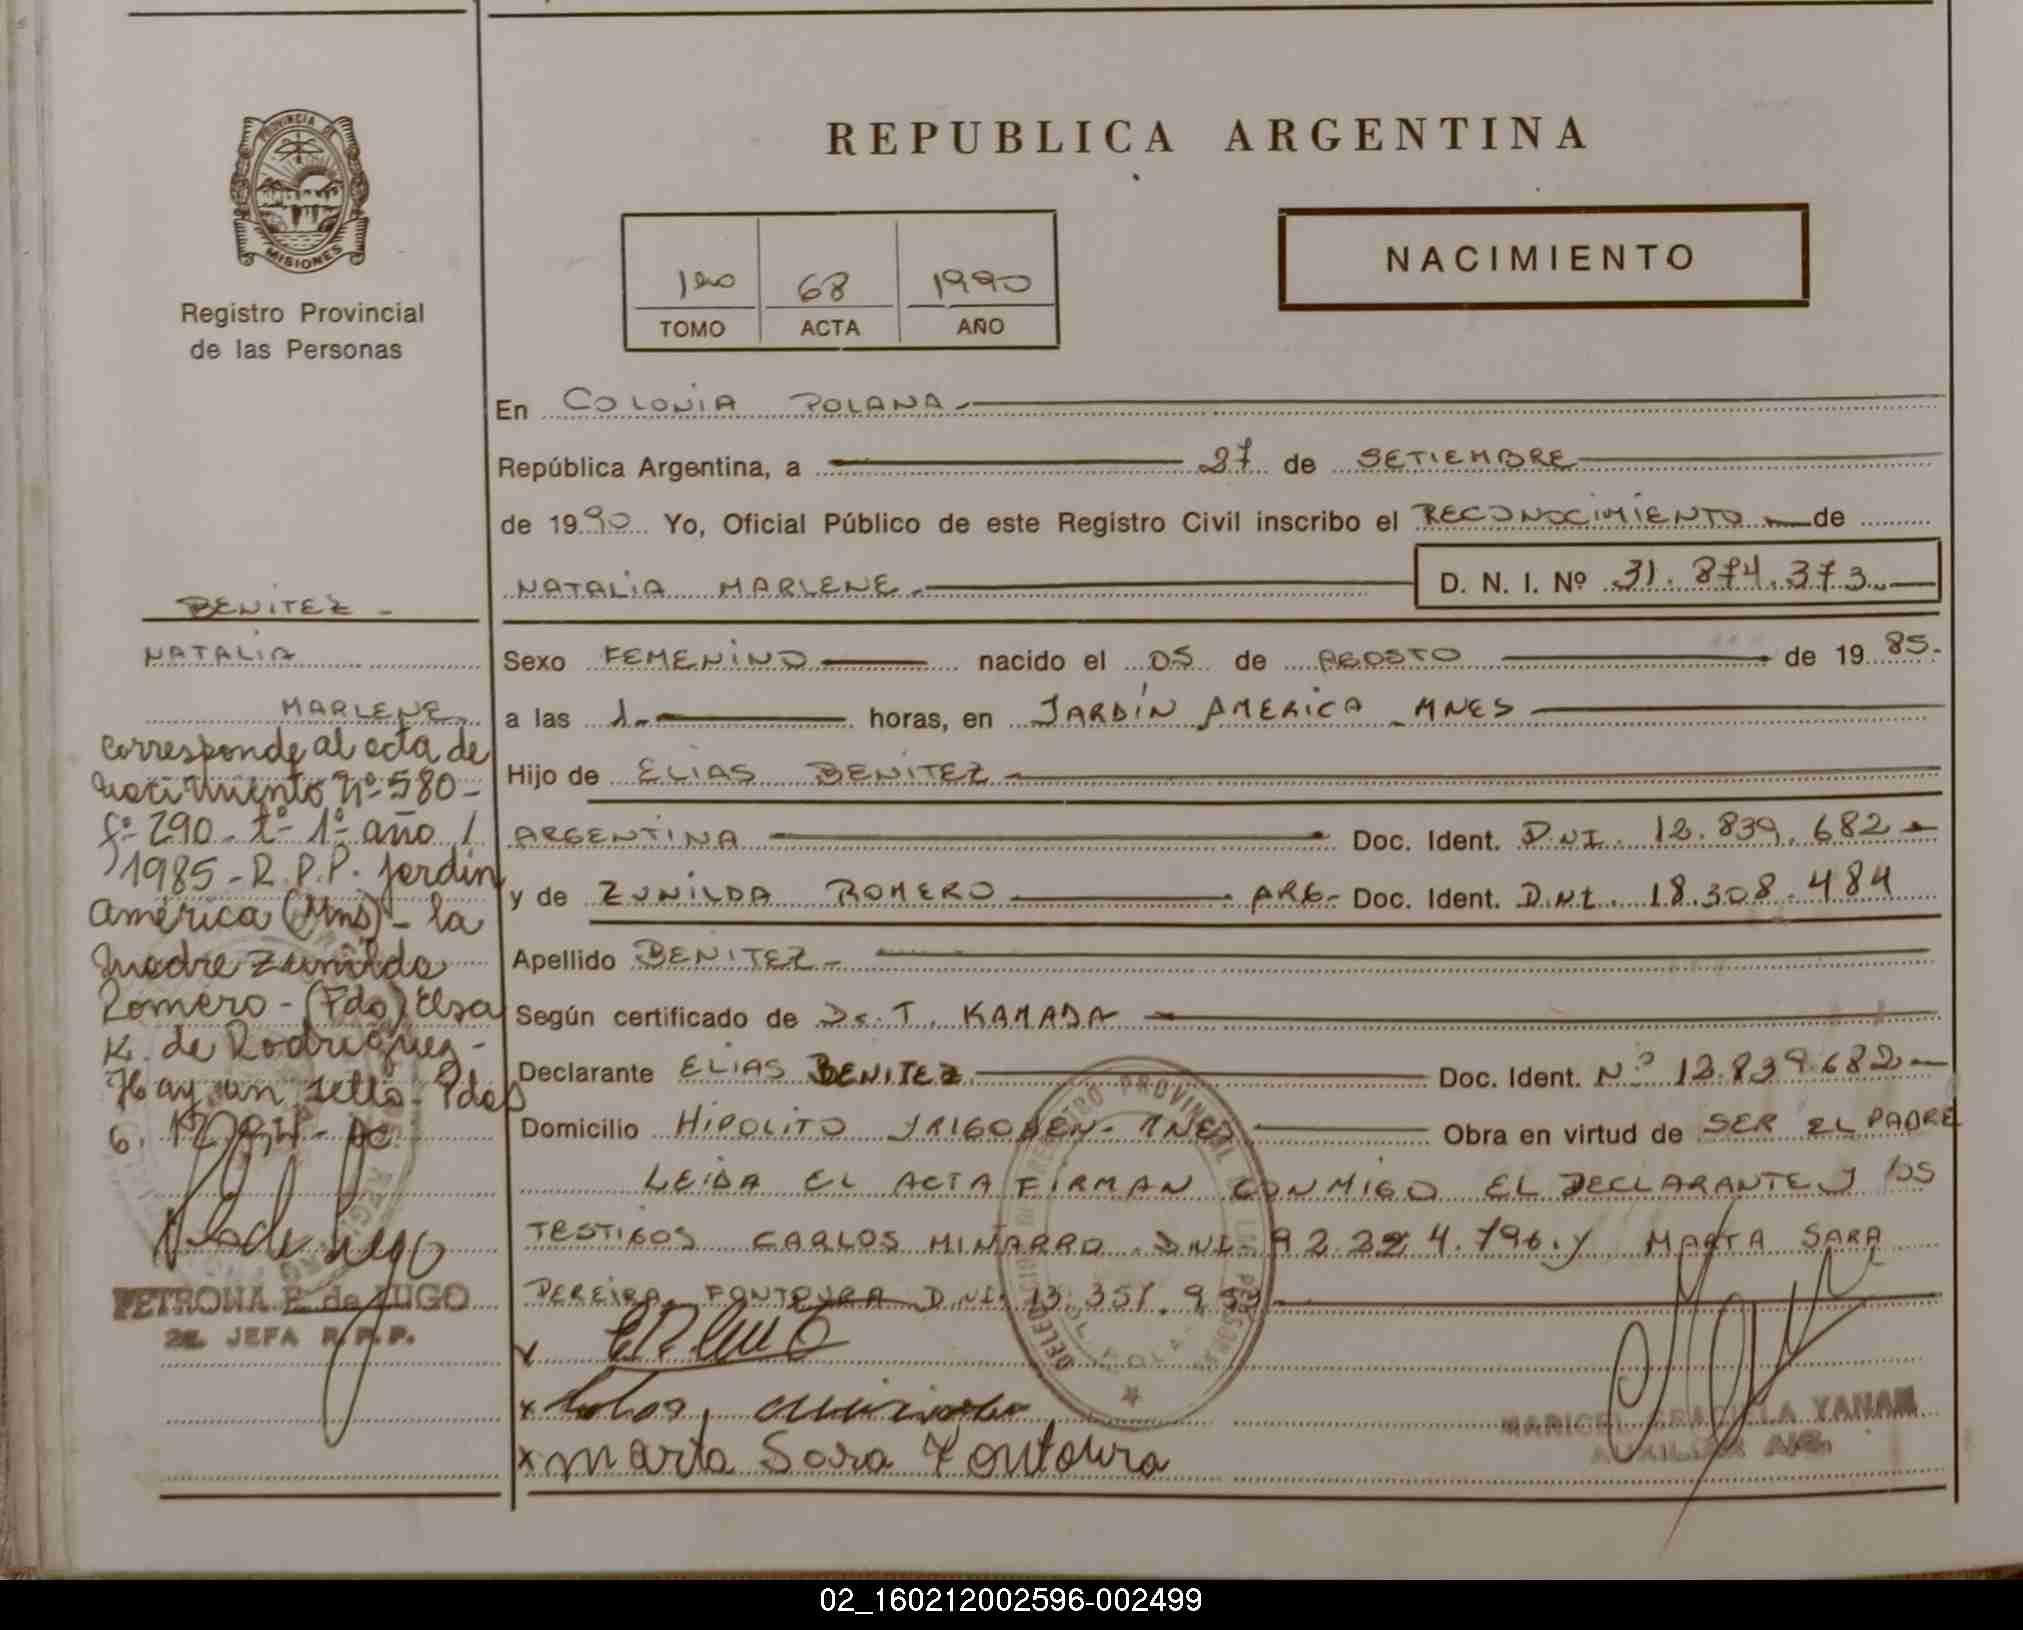 REPUBLICA ARGENTINA
PROVINCIA DE
MISIONES
Registro Provincial
de las Personas
NACIMIENTO
1ro 68 1990
TOMO ACTA AÑO
En COLONIA POLANA.-
República Argentina, a 27 de SETIEMBRE
de 1990 Yo, Oficial Público de este Registro Civil inscribo el RECONOCIMIENTO de
NATALIA MARLENE.- D. N. I. Nº 31.874.373.-
Sexo FEMENINO nacido el 05 de AGOSTO de 1985.-
a las 1.- horas, en JARDÍN AMERICA - MNES
Hijo de ELIAS BENITEZ
ARGENTINA Doc. Ident. D.NI. 12.839.682-
y de ZUNILDA ROMERO ARG- Doc. Ident. D.NI. 18.308.484
Apellido BENITEZ -
Según certificado de Dr. T. KAMADA
Declarante ELIAS BENITEZ Doc. Ident. Nº 12.839.682-
Domicilio HIPOLITO YRIGOYEN- MNES Obra en virtud de SER EL PADRE
LEIDA EL ACTA FIRMAN CONMIGO EL DECLARANTE Y LOS
TESTIGOS CARLOS MIÑARRO DNI- 92.224.796.y MARTA SARA
PEREIRA FONTOURA D.NI. 13.351.
x
x
x Marta Sara Fontoura
MARICEL GRACIELA YANAM
AUXILIAR
BENITEZ -
NATALIA
MARLENE
Corresponde al acta de
Nacimiento Nº 580-
fº 290- tº 1º año /
1985- R.P.P. Jardín
América (Mns)- la
Madre Zunilda
Romero- (Fdo) Elsa
K. de Rodríguez-
Hay un sello. Pdas
6.
PETRONA E. de LUGO
2a. JEFA R.P.P.
02_160212002596-002499